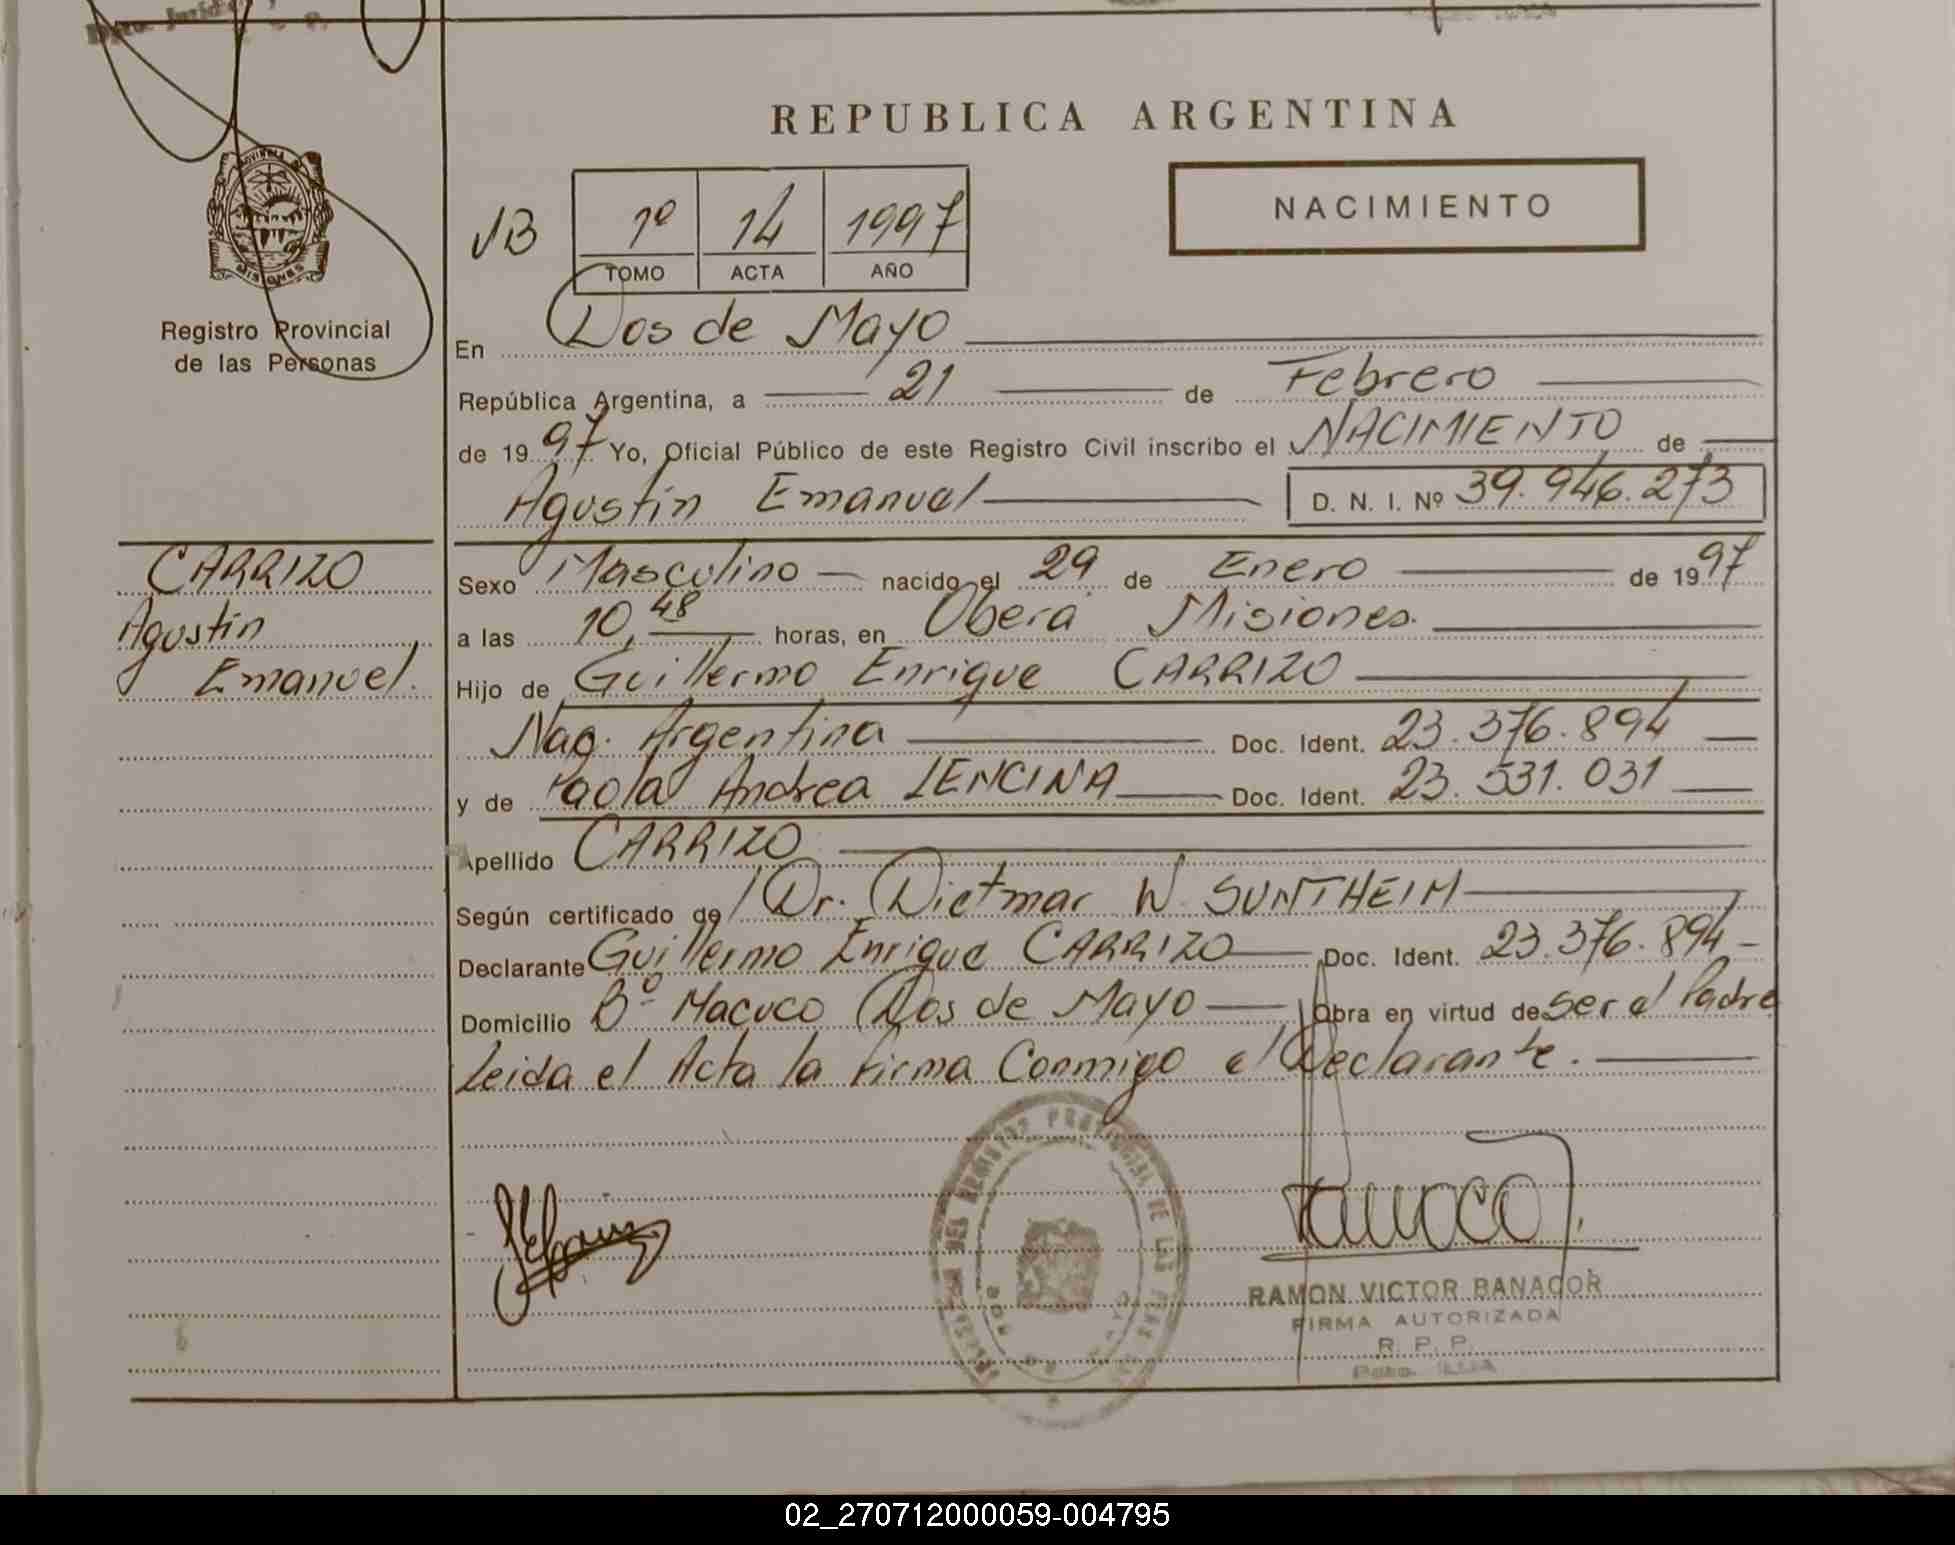 Dpto. Jurídico
REPUBLICA ARGENTINA
NACIMIENTO
JB 1º 14 1997
TOMO ACTA AÑO
PROVINCIA DE
MISIONES
Registro Provincial
de las Personas
En Dos de Mayo
República Argentina, a 21 de Febrero
de 1997 Yo, Oficial Público de este Registro Civil inscribo el NACIMIENTO de
Agustin Emanuel D. N. I. Nº 39.946.273
CARRIZO
Agustin
Emanuel.
Sexo Masculino nacido el 29 de Enero de 1997
a las 10,48 horas, en Oberá Misiones.
Hijo de Guillermo Enrique CARRIZO
Nac. Argentina Doc. Ident. 23.376.894
y de Paola Andrea LENCINA Doc. Ident. 23.531.031
Apellido CARRIZO
Según certificado de Dr. Dietmar W. SUNTHEIM
Declarante Guillermo Enrique CARRIZO Doc. Ident. 23.376.894
Domicilio Bº Macuco Dos de Mayo Obra en virtud de ser el Padre
Leida el Acta la firma Conmigo el Declarante.
DEL REGISTRO PROVINCIAL DE LAS PERSONAS
DOS DE MAYO
RAMON VICTOR BANACOR
FIRMA AUTORIZADA
R. P. P.
02_270712000059-004795